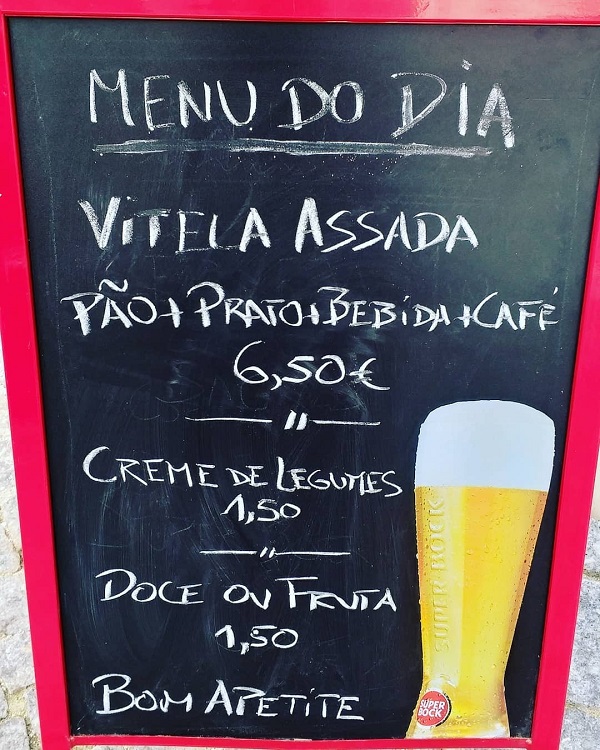 MENU DO DIA
VITELA ASSADA
PÃO+PRATO+BEBIDA+CAFÉ
6,50€
CREME DE LEGUMES
1,50
DOCE OU FRUTA
1,50
BOM APETITE
SUPER BOCK
SUPER BOCK